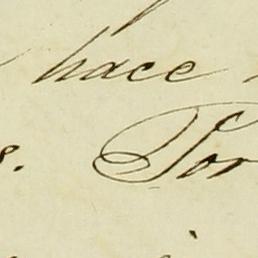 hace
s. Por